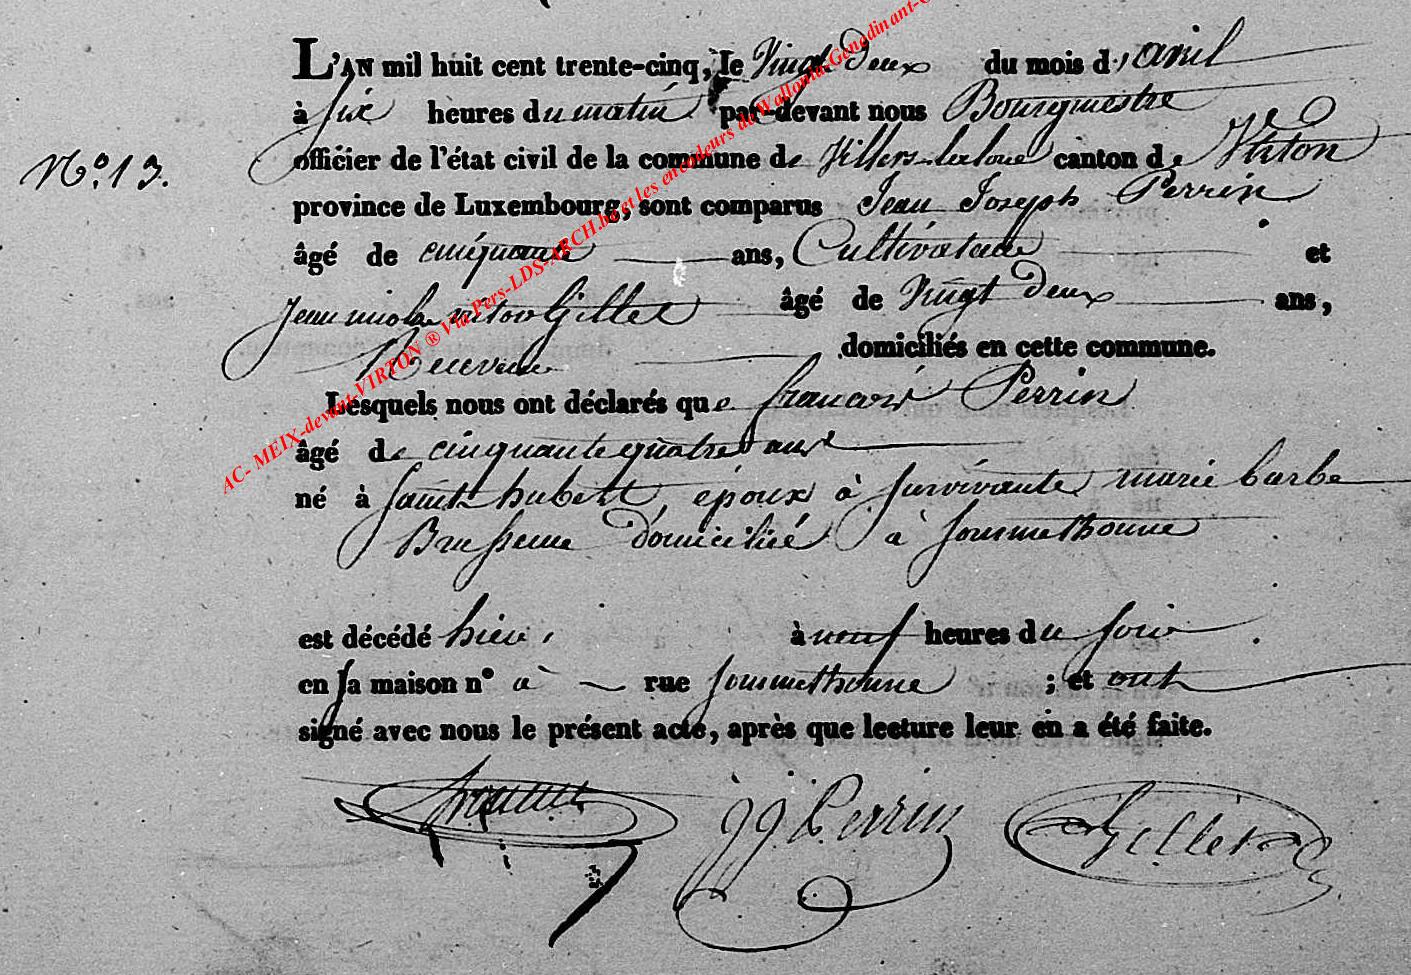 L'AN mil huit cent trente-cinq, le Vingt Deux du mois d'avril
à six heures du matin par-devant nous Bourgmestre
officier de l'état civil de la commune de Villers-laloue canton de Virton
N.º 13.
province de Luxembourg, sont comparus Jean Joseph Perrin
âgé de cinquante ans, Cultivateur et
Jean nicolas victor Gillet âgé de Vingt Deux ans,
Receveur domiciliés en cette commune.
Lesquels nous ont déclarés que francois Perrin
âgé de cinquante quatre ans
né à Saint hubert, époux à survivante marie barbe
domicilié à Sommethonne
est décédé hier, à neuf heures du soir.
en sa maison nº à rue Sommethonne ; et ont
signé avec nous le présent acte, après que lecture leur en a été faite.
jj Perrin Gillet
AC- MEIX-devant-VIRTON ® Via Pers-LDS-ARCH.be et les encodeurs de Wallonia-Genedinant-